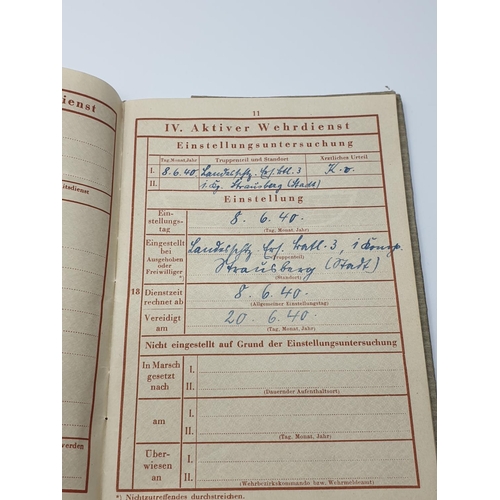 ienst
itsdienst
werden
11
IV. Aktiver Wehrdienst
Einstellungsuntersuchung
Tag, Monat, Jahr Truppenteil und Standort Ärztliches Urteil
I. 8.6.40. Landesschtz. Ers. Batl. 3 K.v.
II. Strausberg (Stadt)
Einstellung
Ein-
stellungs-
tag
8. 6. 40.
(Tag, Monat, Jahr)
Eingestellt
bei
Ausgehoben
oder
Freiwilliger
*)
Landesschtz. Ers. Batl. 3,
(Truppenteil)
Strausberg (Stadt)
(Standort)
18
Dienstzeit
rechnet ab
8. 6. 40.
(Allgemeiner Einstellungstag)
Vereidigt
am
20. 6. 40.
(Tag, Monat, Jahr)
Nicht eingestellt auf Grund der Einstellungsuntersuchung
In Marsch
gesetzt
nach
I.
II.
(Dauernder Aufenthaltsort)
am
I.
II.
(Tag, Monat, Jahr)
Über-
wiesen
an
I.
II.
(Wehrbezirkskommando bzw. Wehrmeldeamt)
*) Nichtzutreffendes durchstreichen.